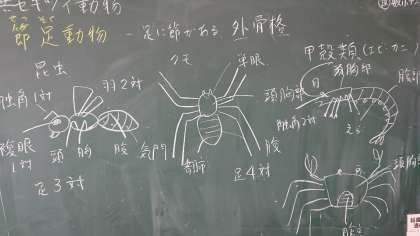 セキツイ動物
せっそく
節足動物 － 足に節がある 外骨格
昆虫
触角1対
羽2対
複眼
1対
頭 胸 腹
足3対
クモ
単眼
頭胸部
気門
腹部
足4対
甲殻類(エビ・カニ
頭胸部
目
腹部
触角2対
えら
頭胸部
えら
腹部